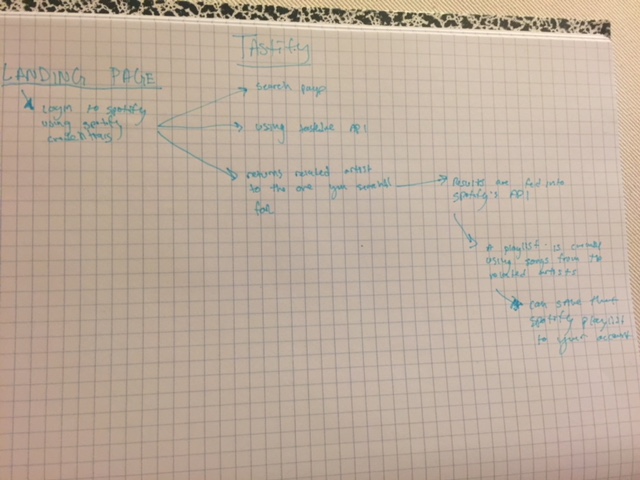 Tastify
LANDING PAGE
Login to spotify
using spotify
credentials
search page
using tastedive API
returns related artist
to the one you searched
for
Results are fed into
spotify's API
A playlist is created
using songs from the
related artists
can save that
spotify playlist
to your account